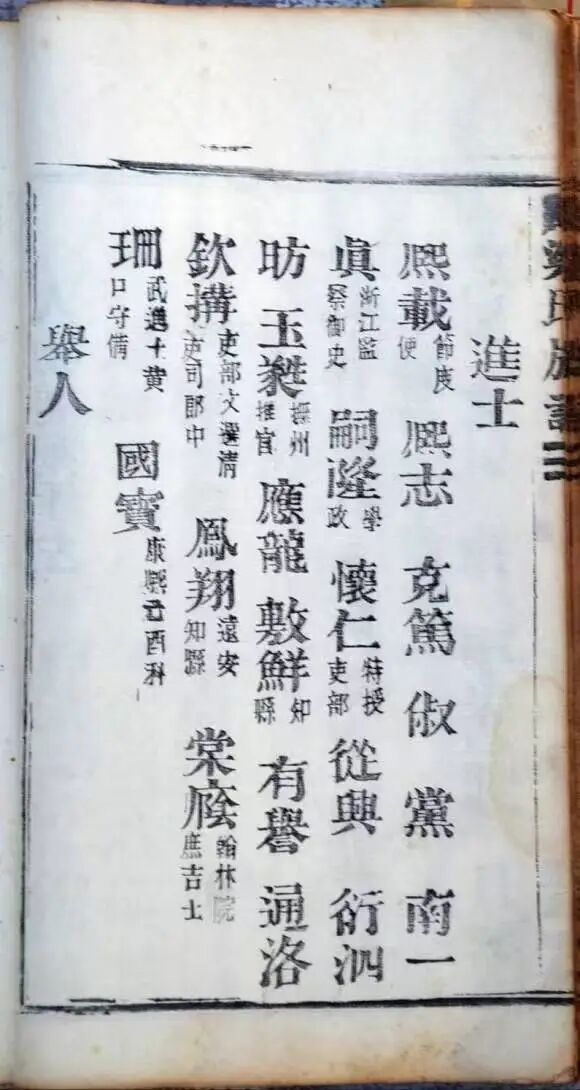 氏族譜
進士
熙載 節度使 熙志 克篤 俶 黨 南一
眞 浙江監察御史 嗣隆 學政 懷仁 特授吏部 從興 衍泗
昉 玉蕤 撫州推官 應龍 敷鮮 知縣 有譽 通洛
欽搆 吏部文選清吏司郎中 鳳翔 遠安知縣 棠廕 翰林院庶吉士
珊 武進士黄口守備 國寳 康熙辛酉科
舉人